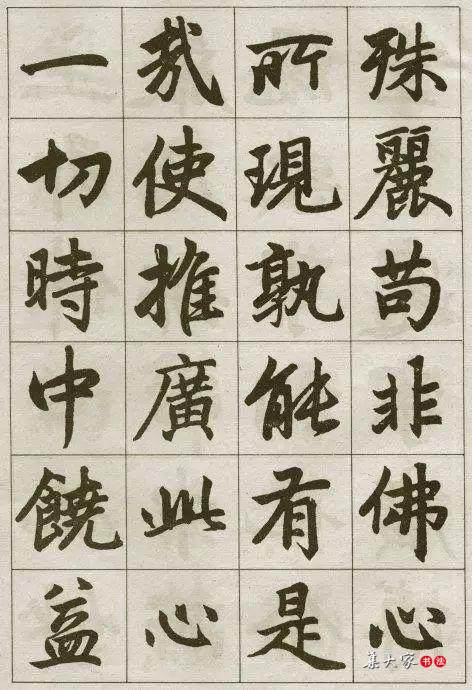 殊麗苟非佛心
所現孰能有是
哉使推廣此心
一切時中饒益
集大家书法